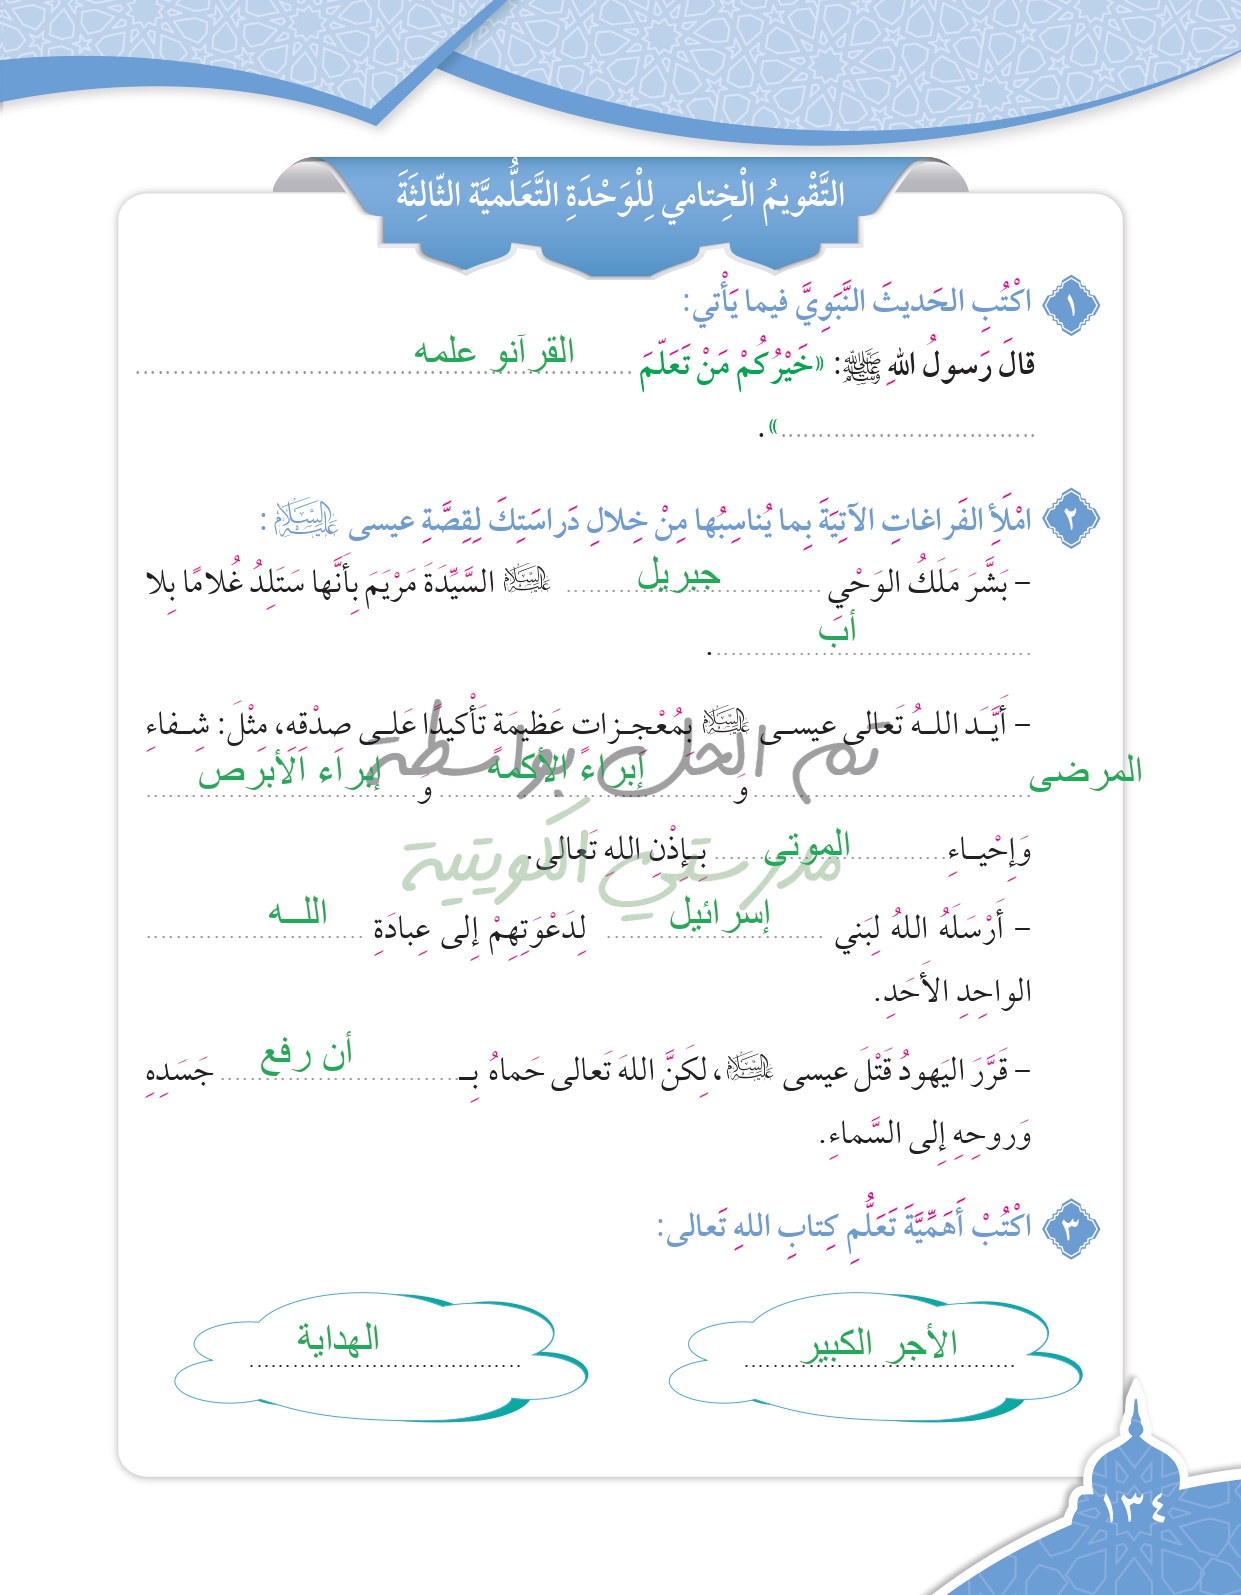 التَّقْويمُ الْخِتامي لِلْوَحْدَةِ التَّعَلُّميَّة الثّالِثَةَ
١ اكْتُبِ الحَديثَ النَّبَوِيَّ فيما يَأْتي:
قالَ رَسولُ اللهِ ﷺ: «خَيْرُكُمْ مَنْ تَعَلّمَ القرآنو علمه
».
٢ امْلَأِ الفَراغاتِ الآتِيَةَ بِما يُناسِبُها مِنْ خِلالِ دَراسَتِكَ لِقِصَّةِ عيسى عليه السلام :
– بَشَّرَ مَلَكُ الوَحْي جبريل عليه السلام السَّيِّدَةَ مَرْيَمَ بِأَنَّها سَتَلِدُ غُلامًا بِلا
أب .
– أَيَّـد اللـهُ تَعالى عيسـى عليه السلام بِمُعْجِـزات عَظيمَة تَأْكيدًا عَلـى صدْقِه، مِثْلَ: شِـفاءِ
المرضى وَ إبراء الأكمة وَ إبراء الأبرص
وَإِحْيـاءِ الموتى بِـإِذْنِ اللهِ تَعالى.
تم الحل بواسطة
مدرستي الكويتية
– أَرْسَلَهُ اللهُ لِبَني إسرائيل لِدَعْوَتِهِمْ إِلى عِبادَةِ اللـه
الواحِدِ الأَحَدِ.
– قَرَّرَ اليَهودُ قَتْلَ عيسى عليه السلام، لِكَنَّ اللهَ تَعالى حَماهُ بِـ أن رفع جَسَدِهِ
وَروحِهِ إِلى السَّماءِ.
٣ اكْتُبْ أَهَمِّيَّةَ تَعَلُّمِ كِتابِ اللهِ تَعالى:
الأجر الكبير الهداية
١٣٤